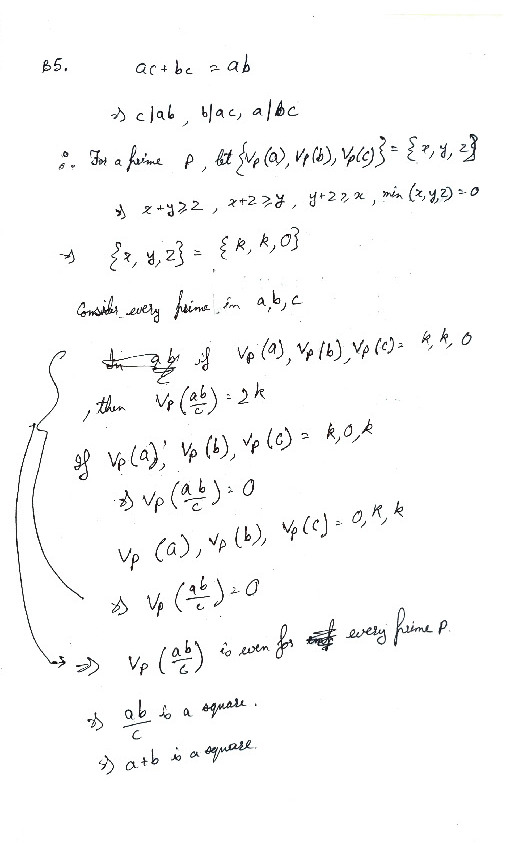 B5. ac + bc = ab
⇒ c|ab, b|ac, a|bc
∴ For a prime p, let {Vp(a), Vp(b), Vp(c)} = {x, y, z}
⇒ x+y≥z, x+z≥y, y+z≥x, min(x,y,z)=0
⇒ {x, y, z} = {k, k, 0}
Consider every prime in a, b, c
if Vp(a), Vp(b), Vp(c) = k, k, 0
, then Vp(ab/c) = 2k
If Vp(a), Vp(b), Vp(c) = k, 0, k
⇒ Vp(ab/c) = 0
Vp(a), Vp(b), Vp(c) = 0, k, k
⇒ Vp(ab/c) = 0
⇒ Vp(ab/c) is even for every prime p.
⇒ ab/c is a square.
⇒ a+b is a square.